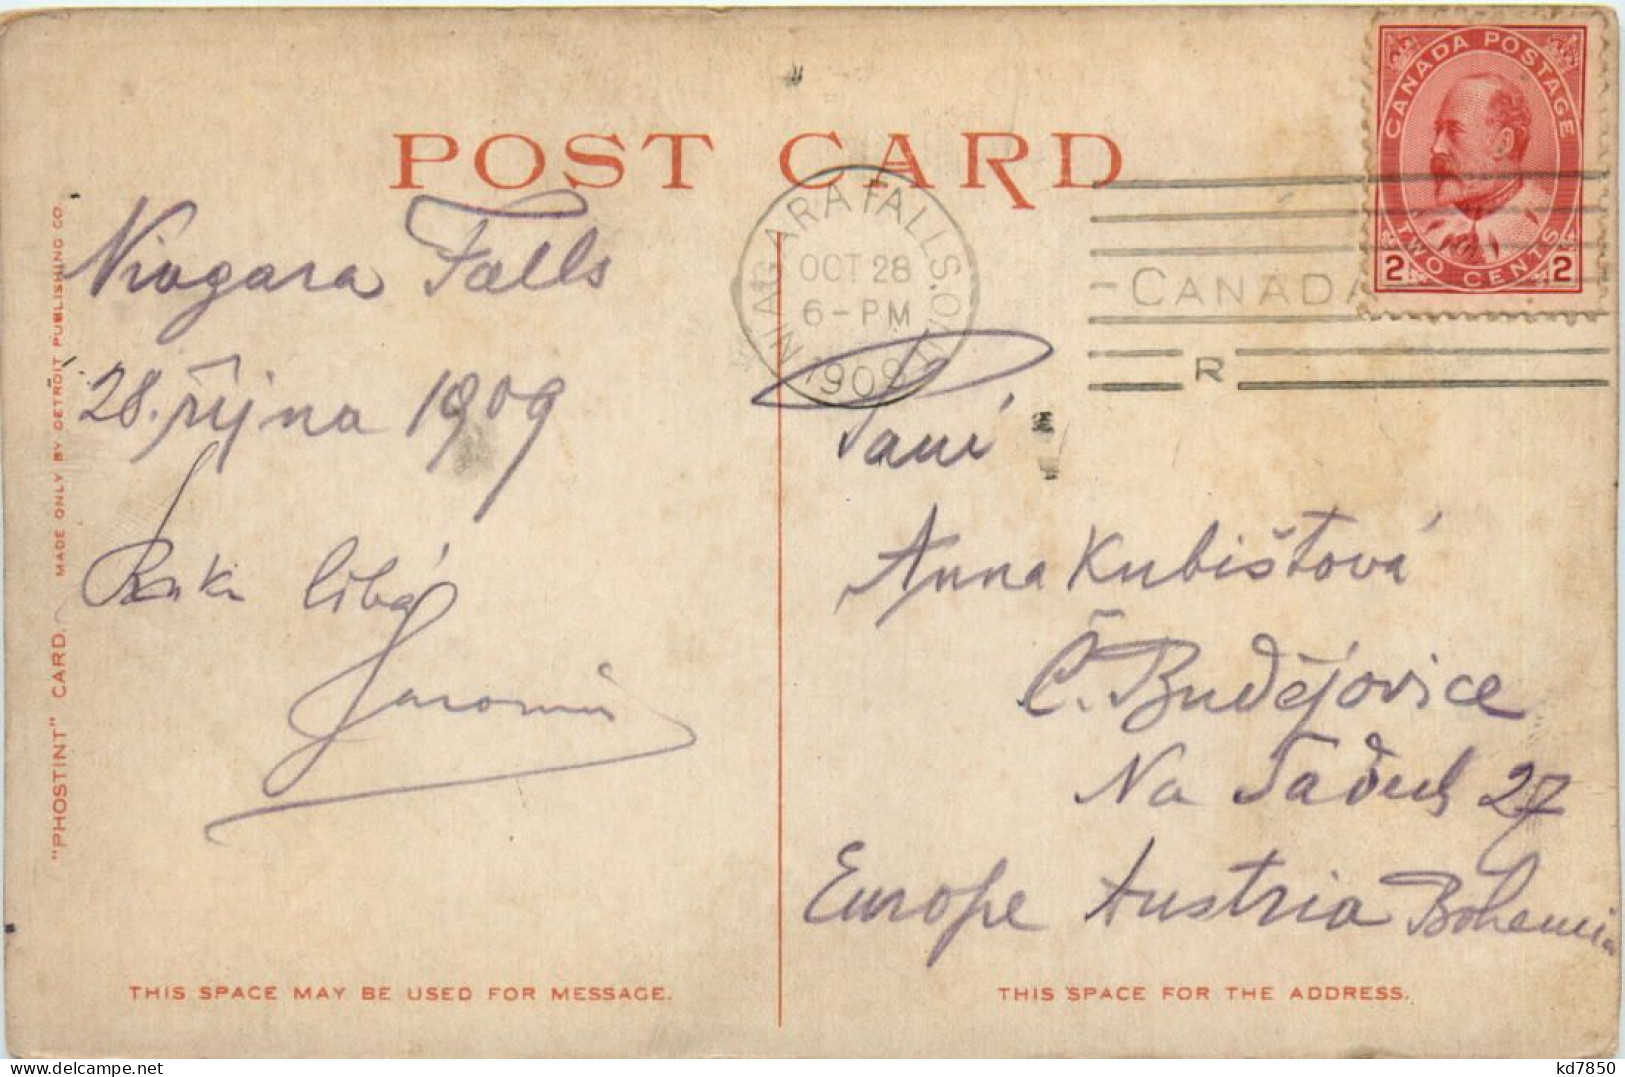 POST CARD
CANADA POSTAGE
2 TWO CENTS 2
NIAGARA FALLS. ONT.
OCT 28
6-PM
1909
CANADA
R
Niagara Falls
28. října 1909
líbá
Jaromír
Paní
Anna Kubištová
Č. Budějovice
Na Sadech 27
Europe Austria Bohemia
"PHOSTINT" CARD. MADE ONLY BY DETROIT PUBLISHING CO.
THIS SPACE MAY BE USED FOR MESSAGE.
THIS SPACE FOR THE ADDRESS.
kd7850